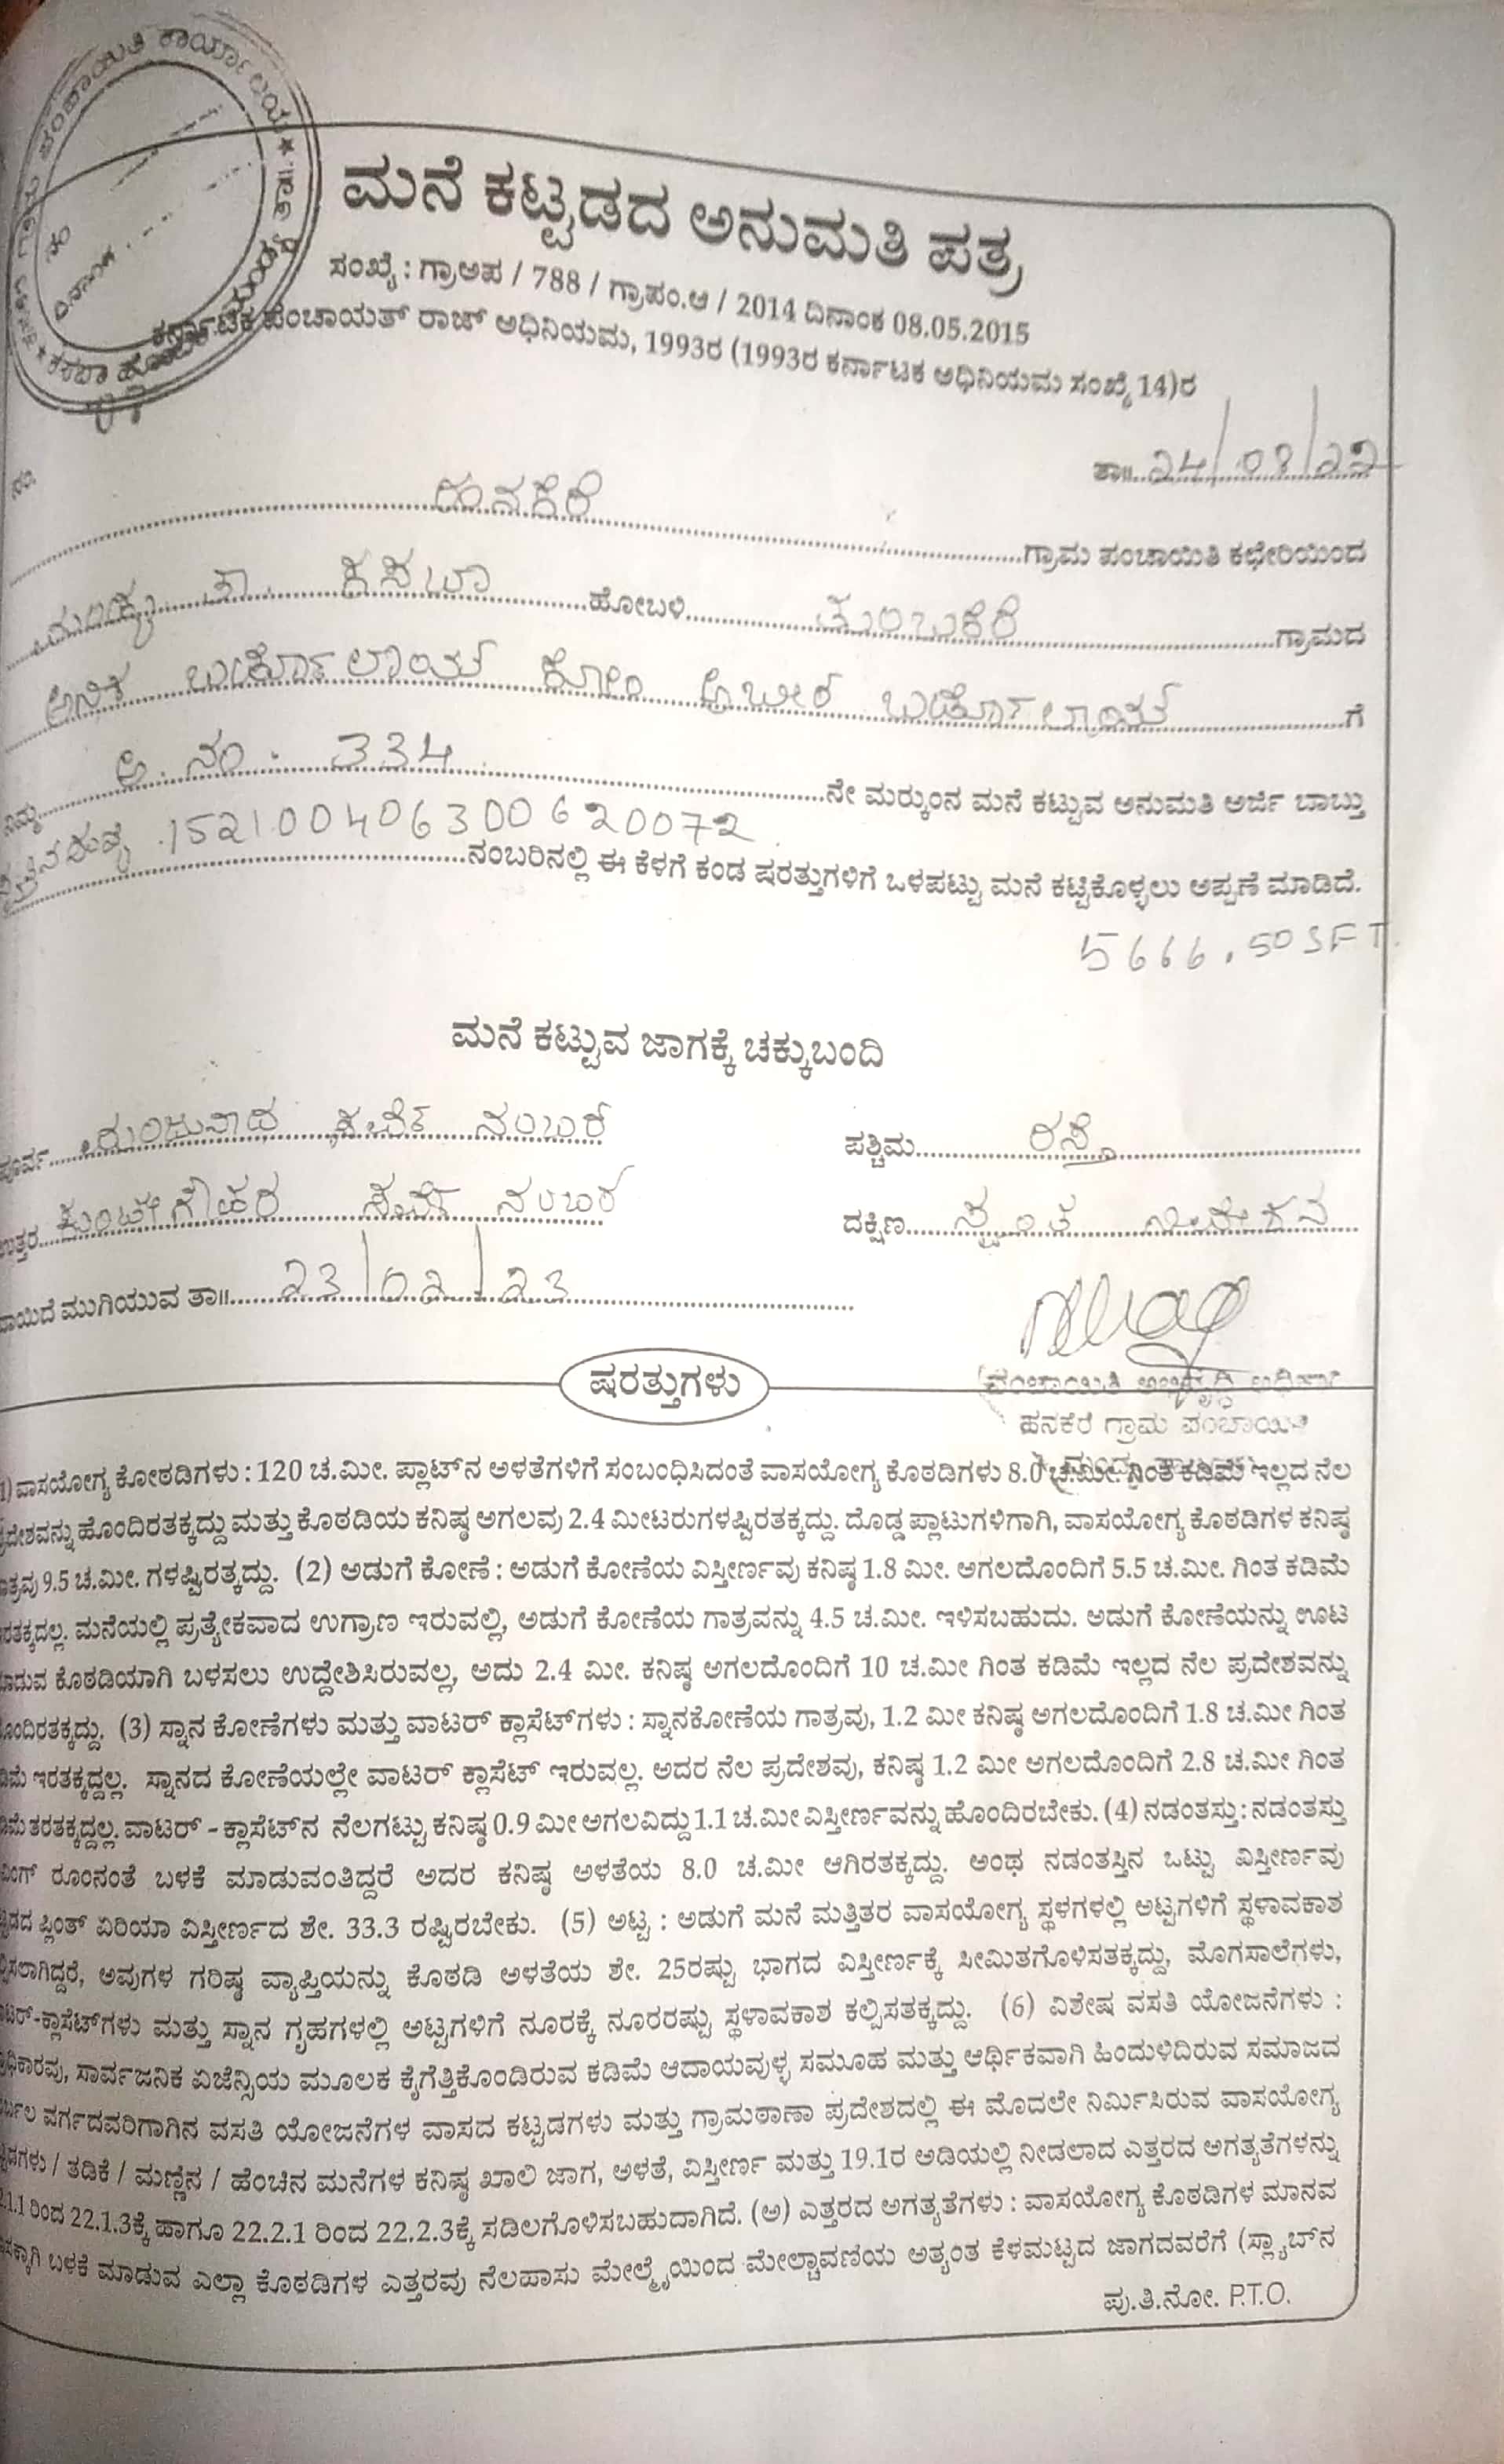 ಪಂಚಾಯಿತಿ ಕಾರ್ಯಾಲಯ
ದಿನಾಂಕ
ಕಸಬಾ ಹೋಬಳಿ
ಮನೆ ಕಟ್ಟಡದ ಅನುಮತಿ ಪತ್ರ
ಸಂಖ್ಯೆ : ಗ್ರಾಅಪ / 788 / ಗ್ರಾಪಂ.ಆ / 2014 ದಿನಾಂಕ 08.05.2015
ಕರ್ನಾಟಕ ಪಂಚಾಯತ್ ರಾಜ್ ಅಧಿನಿಯಮ, 1993ರ (1993ರ ಕರ್ನಾಟಕ ಅಧಿನಿಯಮ ಸಂಖ್ಯೆ 14)ರ
ನಂ.
ತಾ॥ 24/08/22
ಹನಕೆರೆ ಗ್ರಾಮ ಪಂಚಾಯಿತಿ ಕಛೇರಿಯಿಂದ
ಮಂಡ್ಯ ತಾ. ಕಸಬಾ ಹೋಬಳಿ ಗ್ರಾಮದ
ಗೆ
ನಿಮ್ಮ ಅ. ನಂ: 334 ನೇ ಮರ‍್ಕುಂನ ಮನೆ ಕಟ್ಟುವ ಅನುಮತಿ ಅರ್ಜಿ ಬಾಬ್ತು
152100406300620072 ನಂಬರಿನಲ್ಲಿ ಈ ಕೆಳಗೆ ಕಂಡ ಷರತ್ತುಗಳಿಗೆ ಒಳಪಟ್ಟು ಮನೆ ಕಟ್ಟಿಕೊಳ್ಳಲು ಅಪ್ಪಣೆ ಮಾಡಿದೆ.
5666.50 SFT.
ಮನೆ ಕಟ್ಟುವ ಜಾಗಕ್ಕೆ ಚಕ್ಕುಬಂದಿ
ಪೂರ್ವ ಮಂಜುನಾಥ ಸರ್ವೆ ನಂಬರ್ ಪಶ್ಚಿಮ ರಸ್ತೆ
ಉತ್ತರ ಸರ್ವೆ ನಂಬರ್ ದಕ್ಷಿಣ ಸ್ವಂತ ನಿವೇಶನ
ವಾಯಿದೆ ಮುಗಿಯುವ ತಾ॥ 23/02/23
ಷರತ್ತುಗಳು
ಪಂಚಾಯಿತಿ ಅಭಿವೃದ್ಧಿ ಅಧಿಕಾರಿ
ಹನಕೆರೆ ಗ್ರಾಮ ಪಂಚಾಯಿತಿ
1) ವಾಸಯೋಗ್ಯ ಕೋಠಡಿಗಳು : 120 ಚ.ಮೀ. ಪ್ಲಾಟ್‌ನ ಅಳತೆಗಳಿಗೆ ಸಂಬಂಧಿಸಿದಂತೆ ವಾಸಯೋಗ್ಯ ಕೊಠಡಿಗಳು 8.0 ಚ.ಮೀ. ಗಿಂತ ಕಡಿಮೆ ಇಲ್ಲದ ನೆಲ
ಪ್ರದೇಶವನ್ನು ಹೊಂದಿರತಕ್ಕದ್ದು ಮತ್ತು ಕೊಠಡಿಯ ಕನಿಷ್ಠ ಅಗಲವು 2.4 ಮೀಟರುಗಳಷ್ಟಿರತಕ್ಕದ್ದು. ದೊಡ್ಡ ಪ್ಲಾಟುಗಳಿಗಾಗಿ, ವಾಸಯೋಗ್ಯ ಕೊಠಡಿಗಳ ಕನಿಷ್ಠ
ಗಾತ್ರವು 9.5 ಚ.ಮೀ. ಗಳಷ್ಟಿರತ್ಕದ್ದು. (2) ಅಡುಗೆ ಕೋಣೆ : ಅಡುಗೆ ಕೋಣೆಯ ವಿಸ್ತೀರ್ಣವು ಕನಿಷ್ಠ 1.8 ಮೀ. ಅಗಲದೊಂದಿಗೆ 5.5 ಚ.ಮೀ. ಗಿಂತ ಕಡಿಮೆ
ಇರತಕ್ಕದಲ್ಲ. ಮನೆಯಲ್ಲಿ ಪ್ರತ್ಯೇಕವಾದ ಉಗ್ರಾಣ ಇರುವಲ್ಲಿ, ಅಡುಗೆ ಕೋಣೆಯ ಗಾತ್ರವನ್ನು 4.5 ಚ.ಮೀ. ಇಳಿಸಬಹುದು. ಅಡುಗೆ ಕೋಣೆಯನ್ನು ಊಟ
ಮಾಡುವ ಕೊಠಡಿಯಾಗಿ ಬಳಸಲು ಉದ್ದೇಶಿಸಿರುವಲ್ಲ, ಅದು 2.4 ಮೀ. ಕನಿಷ್ಠ ಅಗಲದೊಂದಿಗೆ 10 ಚ.ಮೀ ಗಿಂತ ಕಡಿಮೆ ಇಲ್ಲದ ನೆಲ ಪ್ರದೇಶವನ್ನು
ಹೊಂದಿರತಕ್ಕದ್ದು. (3) ಸ್ನಾನ ಕೋಣೆಗಳು ಮತ್ತು ವಾಟರ್ ಕ್ಲಾಸೆಟ್‌ಗಳು : ಸ್ನಾನಕೋಣೆಯ ಗಾತ್ರವು, 1.2 ಮೀ ಕನಿಷ್ಠ ಅಗಲದೊಂದಿಗೆ 1.8 ಚ.ಮೀ ಗಿಂತ
ಕಡಿಮೆ ಇರತಕ್ಕದ್ದಲ್ಲ. ಸ್ನಾನದ ಕೋಣೆಯಲ್ಲೇ ವಾಟರ್ ಕ್ಲಾಸೆಟ್ ಇರುವಲ್ಲ. ಅದರ ನೆಲ ಪ್ರದೇಶವು, ಕನಿಷ್ಠ 1.2 ಮೀ ಅಗಲದೊಂದಿಗೆ 2.8 ಚ.ಮೀ ಗಿಂತ
ಕಡಿಮೆ ತರತಕ್ಕದ್ದಲ್ಲ. ವಾಟರ್ - ಕ್ಲಾಸೆಟ್‌ನ ನೆಲಗಟ್ಟು ಕನಿಷ್ಠ 0.9 ಮೀ ಅಗಲವಿದ್ದು 1.1 ಚ.ಮೀ ವಿಸ್ತೀರ್ಣವನ್ನು ಹೊಂದಿರಬೇಕು. (4) ನಡಂತಸ್ತು : ನಡಂತಸ್ತು
ರೂಂನಂತೆ ಬಳಕೆ ಮಾಡುವಂತಿದ್ದರೆ ಅದರ ಕನಿಷ್ಠ ಅಳತೆಯ 8.0 ಚ.ಮೀ ಆಗಿರತಕ್ಕದ್ದು. ಅಂಥ ನಡಂತಸ್ತಿನ ಒಟ್ಟು ವಿಸ್ತೀರ್ಣವು
ಪ್ಲಿಂತ್ ಏರಿಯಾ ವಿಸ್ತೀರ್ಣದ ಶೇ. 33.3 ರಷ್ಟಿರಬೇಕು. (5) ಅಟ್ಟ : ಅಡುಗೆ ಮನೆ ಮತ್ತಿತರ ವಾಸಯೋಗ್ಯ ಸ್ಥಳಗಳಲ್ಲಿ ಅಟ್ಟಗಳಿಗೆ ಸ್ಥಳಾವಕಾಶ
ಅವುಗಳ ಗರಿಷ್ಠ ವ್ಯಾಪ್ತಿಯನ್ನು ಕೊಠಡಿ ಅಳತೆಯ ಶೇ. 25ರಷ್ಟು ಭಾಗದ ವಿಸ್ತೀರ್ಣಕ್ಕೆ ಸೀಮಿತಗೊಳಿಸತಕ್ಕದ್ದು, ಮೊಗಸಾಲೆಗಳು,
ವಾಟರ್-ಕ್ಲಾಸೆಟ್‌ಗಳು ಮತ್ತು ಸ್ನಾನ ಗೃಹಗಳಲ್ಲಿ ಅಟ್ಟಗಳಿಗೆ ನೂರಕ್ಕೆ ನೂರರಷ್ಟು ಸ್ಥಳಾವಕಾಶ ಕಲ್ಪಿಸತಕ್ಕದ್ದು. (6) ವಿಶೇಷ ವಸತಿ ಯೋಜನೆಗಳು :
ಪ್ರಾಧಿಕಾರವು, ಸಾರ್ವಜನಿಕ ಏಜೆನ್ಸಿಯ ಮೂಲಕ ಕೈಗೆತ್ತಿಕೊಂಡಿರುವ ಕಡಿಮೆ ಆದಾಯವುಳ್ಳ ಸಮೂಹ ಮತ್ತು ಆರ್ಥಿಕವಾಗಿ ಹಿಂದುಳಿದಿರುವ ಸಮಾಜದ
ದುರ್ಬಲ ವರ್ಗದವರಿಗಾಗಿನ ವಸತಿ ಯೋಜನೆಗಳ ವಾಸದ ಕಟ್ಟಡಗಳು ಮತ್ತು ಗ್ರಾಮಠಾಣಾ ಪ್ರದೇಶದಲ್ಲಿ ಈ ಮೊದಲೇ ನಿರ್ಮಿಸಿರುವ ವಾಸಯೋಗ್ಯ
ಕಟ್ಟಡಗಳು / ತಡಿಕೆ / ಮಣ್ಣಿನ / ಹೆಂಚಿನ ಮನೆಗಳ ಕನಿಷ್ಠ ಖಾಲಿ ಜಾಗ, ಅಳತೆ, ವಿಸ್ತೀರ್ಣ ಮತ್ತು 19.1ರ ಅಡಿಯಲ್ಲಿ ನೀಡಲಾದ ಎತ್ತರದ ಅಗತ್ಯತೆಗಳನ್ನು
ರಿಂದ 22.1.3ಕ್ಕೆ ಹಾಗೂ 22.2.1 ರಿಂದ 22.2.3ಕ್ಕೆ ಸಡಿಲಗೊಳಿಸಬಹುದಾಗಿದೆ. (ಅ) ಎತ್ತರದ ಅಗತ್ಯತೆಗಳು : ವಾಸಯೋಗ್ಯ ಕೊಠಡಿಗಳ ಮಾನವ
ಬಳಕೆ ಮಾಡುವ ಎಲ್ಲಾ ಕೊಠಡಿಗಳ ಎತ್ತರವು ನೆಲಹಾಸು ಮೇಲ್ಮೈಯಿಂದ ಮೇಲ್ಚಾವಣಿಯ ಅತ್ಯಂತ ಕೆಳಮಟ್ಟದ ಜಾಗದವರೆಗೆ (ಸ್ಲ್ಯಾಬ್‌ನ
ಪು.ತಿ.ನೋ. P.T.O.